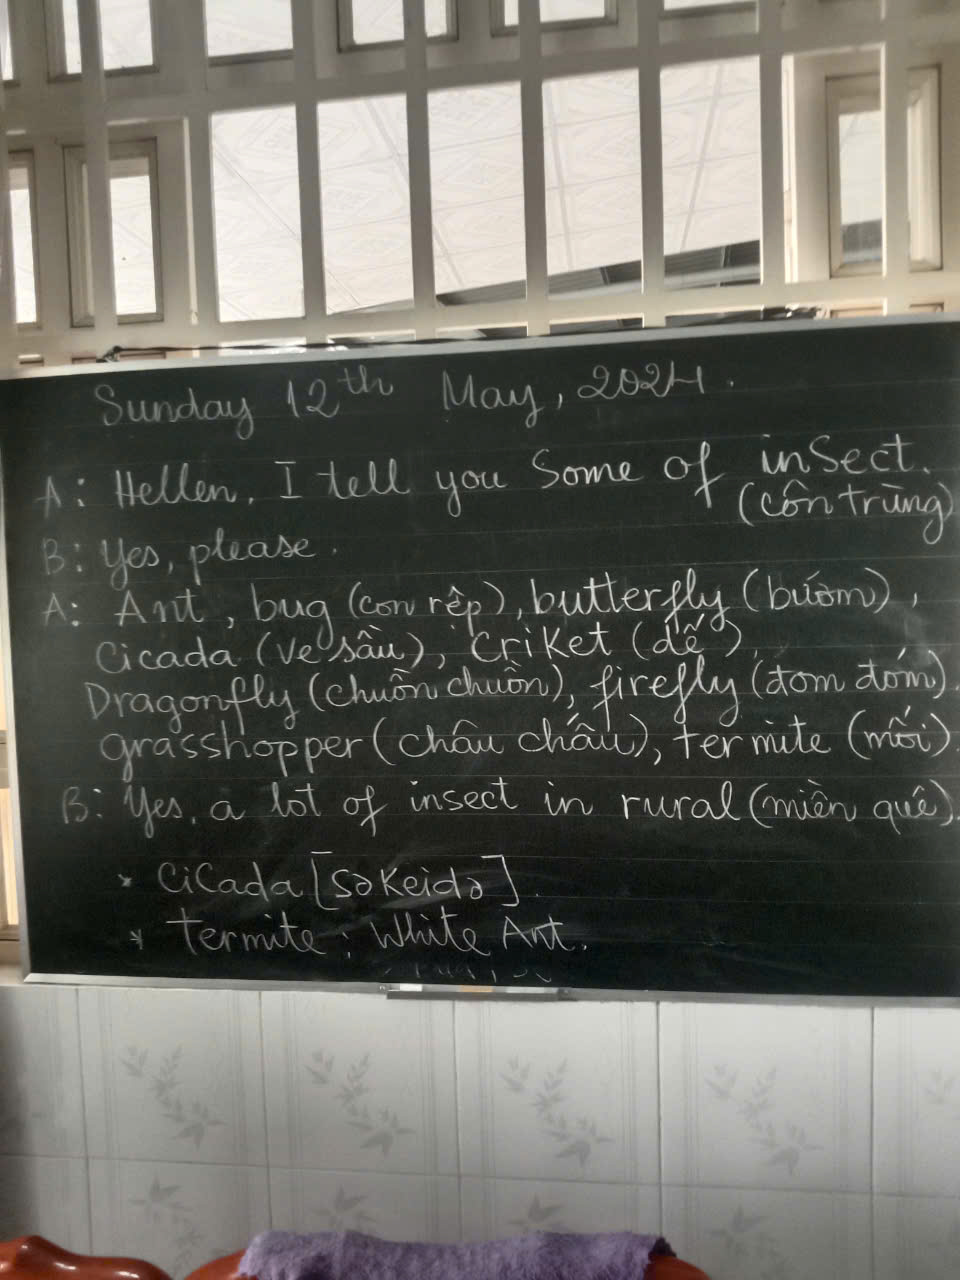 Sunday 12th May, 2024.
A: Hellen, I tell you Some of inSect.
(côn trùng)
B: Yes, please.
A: Ant, bug (con rệp), butterfly (bướm),
Cicada (ve sầu), CriKet (dế),
Dragonfly (chuồn chuồn), firefly (đom đóm).
grasshopper (châu chấu), termite (mối).
B: Yes, a lot of insect in rural (miền quê).
* CiCada [səkeidə].
* Termite: White Ant.